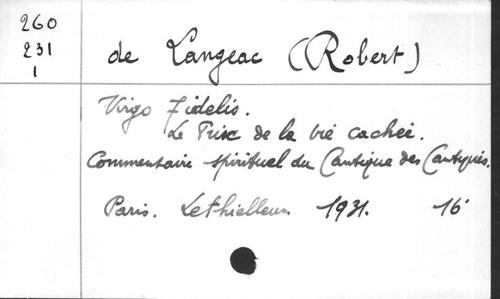 260
231
1
de Langeac (Robert)
Virgo Fidelis.
Le Prix de la vie cachée.
Commentaire spirituel du Cantique des Cantiques.
Paris. Lethielleux 1931. 16°